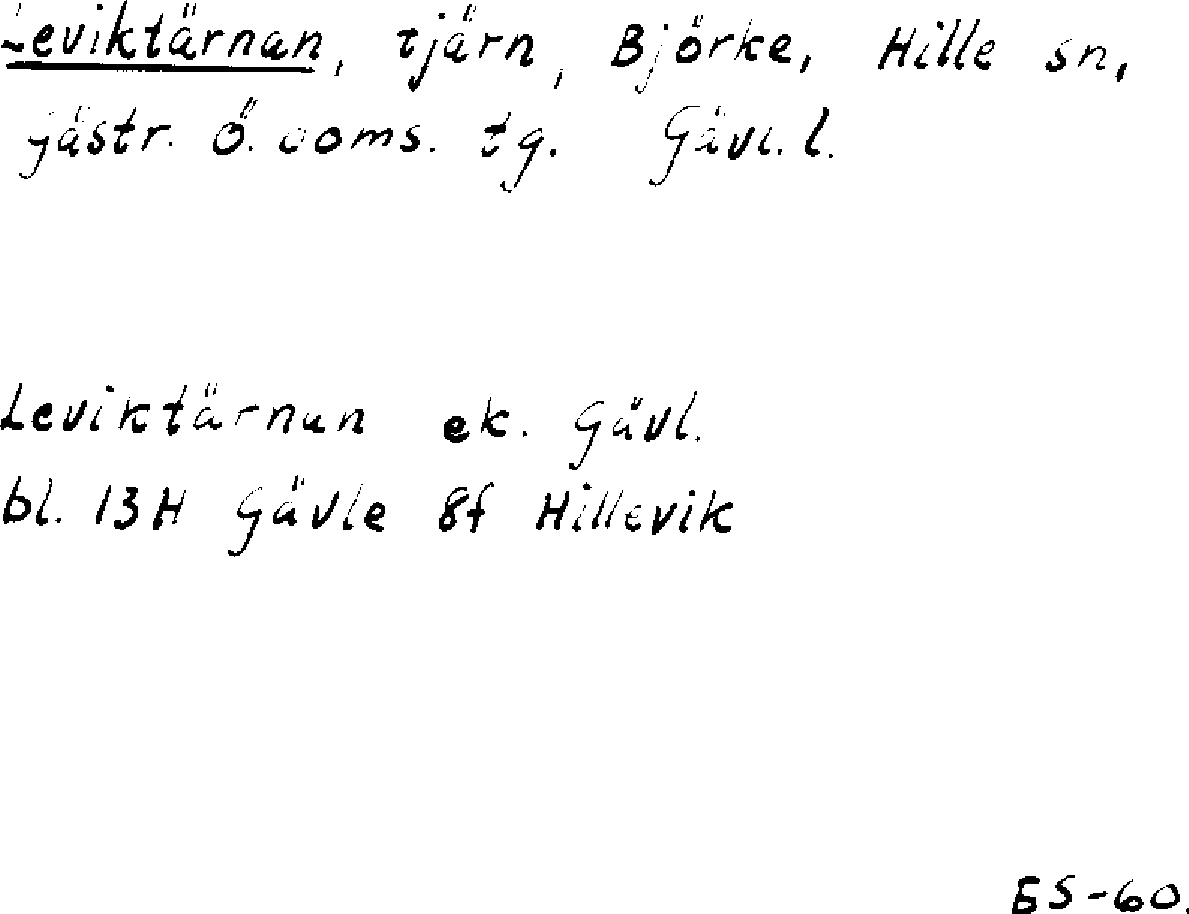 Leviktärnan, tjärn, Björke, Hille sn,
Gästr. Ö. doms. tg. Gävl. l.
Leviktärnan ek. Gävl.
bl. 13H Gävle 8f Hillevik
ES-60.